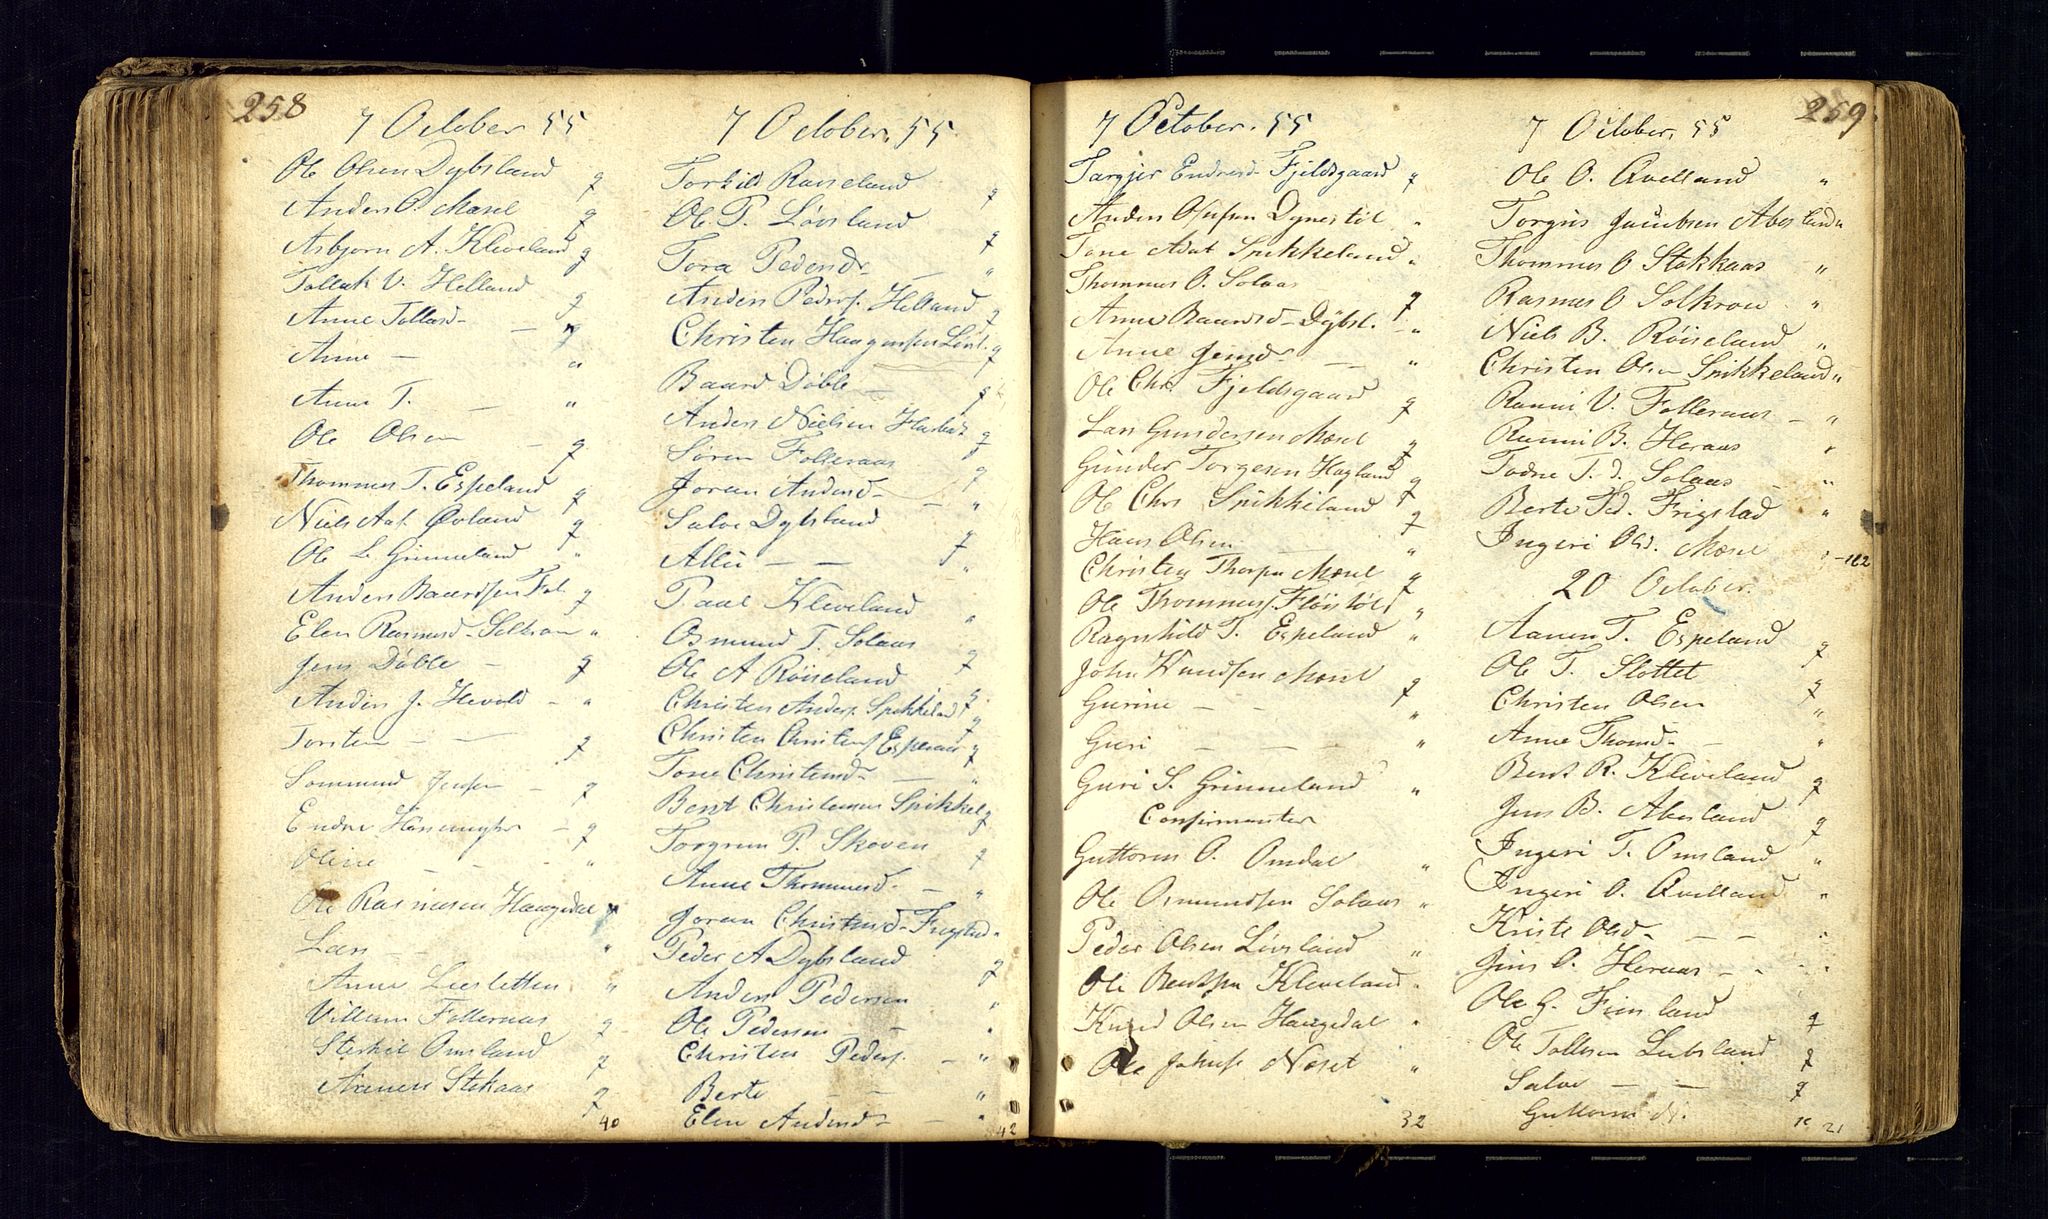 258
7 October 55
Ole Olsen Dybsland g
Anders O. Mæsel g
Asbjørn A. Kleveland g
Tollak V. Helland g
Anne Tollasd - - g
Anne - "
Anne T. - "
Ole Olsen - g
Thommas T. Espeland g
Niels Aas. Øvland g
Ole L Grimeland "
Anders Baardsen Fol. g
Elen Rasmusd - Selkrou "
Jens Døble - g
Anders J. Hevold - "
Torsten - - g
Sommund Jensen - g
Endre - g
Oline - - "
Ole Rasmusen Haugedal g
Lars - - "
Anne Liesletten "
Villum Folleraas g
Sterkil Omsland g
Aanen Stokaas g
40
7 October. 55
Torkild Røiseland g
Ole P. Løvland g
Tora Pedersd - - "
Anders Peders. Helland g
Christen Haagensen Løvl. g
Baard Døble - g
Anders Nielsen g
Søren Folleraas g
Joran Andersd - - "
Salve Dybsland g
Allis - - "
Paal Kleveland "
Osmund T. Solaas g
Ole A Røiseland g
Christen Anders. Spikkeland g
Christen Christens Espeland g
Tone Christensd - - "
Bent Christensen Spikkel g
Torgrim P. Skoven g
Anne Thommasd - - "
Joran Christensd - Frigstad "
Peder A Dybsland g
Anders Pedersen "
Ole Pedersen - - "
Christen Peders. - "
Berte - - "
Elen Andersd - - "
42
7 October. 55
Targjer Endresd - Fjeldsgaard g
Anders Olufsen Dynestøl "
Tone Adat Spikkeland "
Thommas O. Solaas g
Anne Baardsd - Dybsl. - "
Anne Jensd - - - "
Ole Chr. Fjeldsgaard g
Lars Gundersen Mæsel g
Gunder Torgesen Hagland g
Ole Chrs Spikkeland g
Hans Olsen - "
Christen Thorsen Mæsel g
Ole Thommas. Fløistøl "
Ragnhild T. Espeland "
John Knudsen Mæsel g
Gurine - - "
Guri - - - "
Guri S. Grimeland "
Confirmanter
Guttorm O. Omdal "
Ole Osmundsen Solaas "
Peder Olsen Løvland "
Ole Bentsen Kleveland "
Knud Olsen Haugedal "
Ole Jakobs Noset "
32
259
7 October. 55
Ole O. Qvelland "
Torgus Jacobsen Abesland "
Thommas O Stokkaas "
Rasmus O Solkrou "
Niels B. Røiseland "
Christen Olsen Spikkeland "
Ranni V. Folleraas - "
Ranni B. Heraas "
Todne T. d. Solaas - "
Berte Td. Frigstad "
Ingeri Olsd. Mæsel " - 112
20 October.
Aanen T. Espeland g
Ole T. Slottet g
Christen Olsen "
Anne Thomd - - "
Bent R. Kleveland g
Jens B. Abesland g
Ingeri T. Omsland "
Ingeri O. Qvelland "
Kriste Olsd - - - "
Jens O. Heraas - - "
Ole G. Finsland g
Ole Tollesen Liebsland g
Salve - - g
Guttorm N.
21